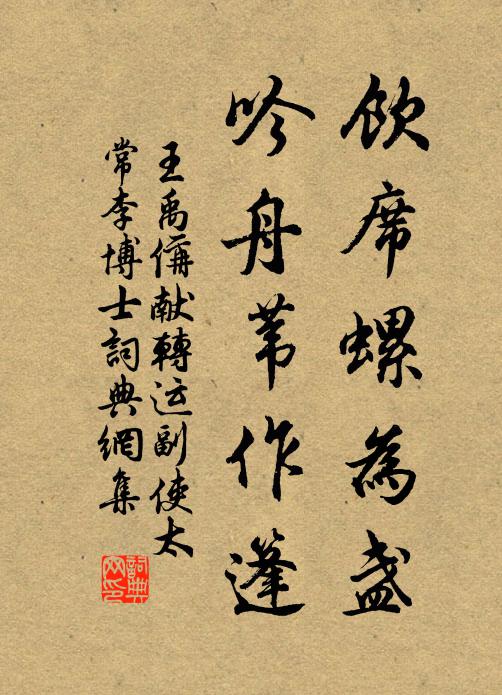 飲席螺為盞
吟舟葦作篷
王禹偁献轉运副使太
常李博士詞典網集
詞典网印